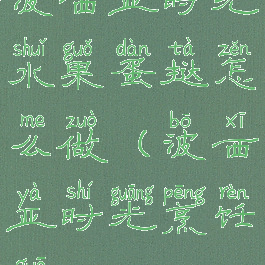 波西亚时光
shuǐ guǒ dàn tà zěn
水果蛋挞怎
me zuò bó xī
么做（波西
yà shí guāng pēng rèn
亚时光烹饪